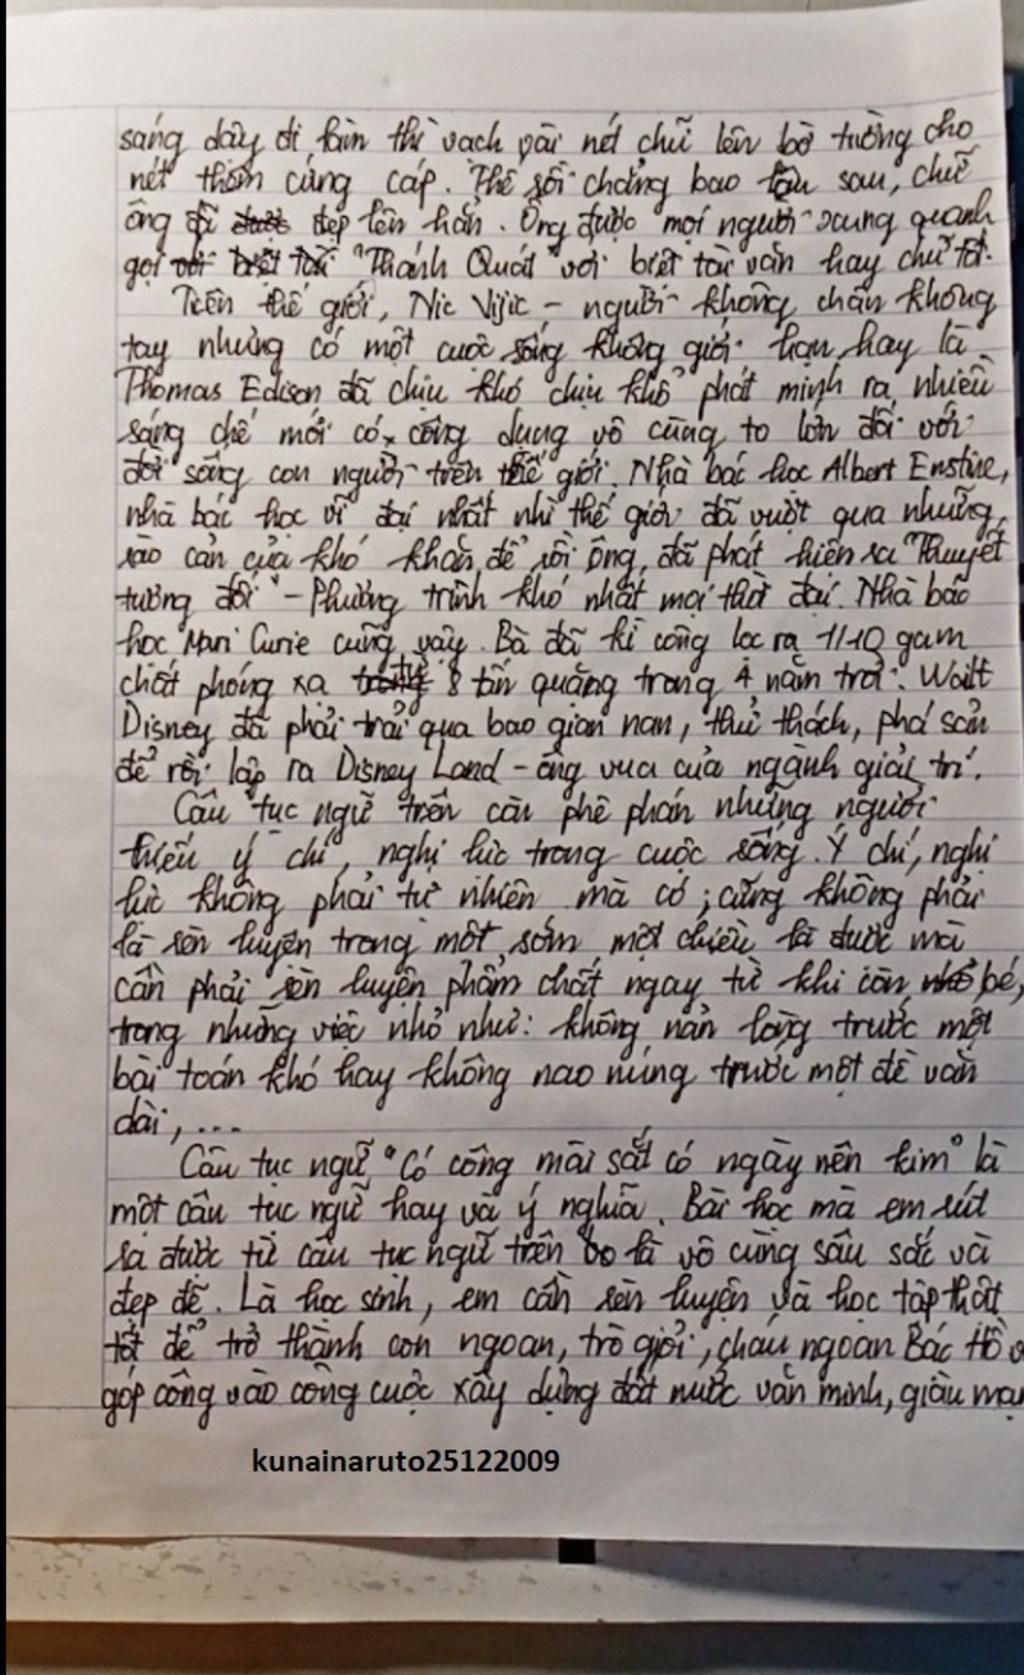 sáng dậy đi làm thì vạch vài nét chữ lên bờ tường cho
nét thêm cứng cáp. Thế rồi chẳng bao lâu sau, chữ
ông đã được đẹp lên hẳn. Ông được mọi người xung quanh
gọi với biệt tài "Thánh Quát" với biệt tài văn hay chữ tốt.
Trên thế giới, Nic Vijic - người không chân không
tay nhưng có một cuộc sống không giới hạn hay là
Thomas Edison đã chịu khó chịu khổ phát minh ra nhiều
sáng chế mới có công dụng vô cùng to lớn đối với
đời sống con người trên thế giới. Nhà bác học Albert Enstine,
nhà bác học vĩ đại nhất nhì thế giới đã vượt qua những
rào cản của khó khăn để rồi ông đã phát hiện ra "Thuyết
tương đối" - Phương trình khó nhất mọi thời đại. Nhà bác
học Mari Curie cũng vậy. Bà đã kì công lọc ra 1/10 gam
chất phóng xạ trong từ 8 tấn quặng trong 4 năm trời. Waitt
Disney đã phải trải qua bao gian nan, thử thách, phá sản
để rồi lập ra Disney Land - ông vua của ngành giải trí.
Câu tục ngữ trên còn phê phán những người
thiếu ý chí, nghị lực trong cuộc sống. Ý chí, nghị
lực không phải tự nhiên mà có; cũng không phải
là rèn luyện trong một sớm một chiều là được mà
cần phải rèn luyện phẩm chất ngay từ khi còn nhỏ bé,
trong những việc nhỏ như: không nản lòng trước một
bài toán khó hay không nao núng trước một đề văn
dài,...
Câu tục ngữ "Có công mài sắt có ngày nên kim" là
một câu tục ngữ hay và ý nghĩa. Bài học mà em rút
ra được từ câu tục ngữ trên là vô cùng sâu sắc và
đẹp đẽ. Là học sinh, em cần rèn luyện và học tập thật
tốt để trở thành con ngoan, trò giỏi, cháu ngoan Bác Hồ
góp công vào công cuộc xây dựng đất nước văn minh, giàu
kunainaruto25122009